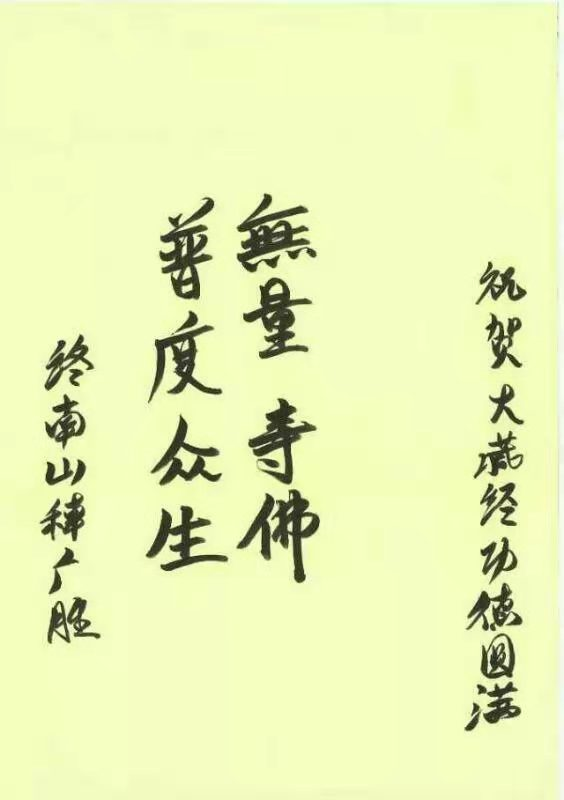 祝贺大藏经功德圆满
無量寿佛
普度众生
终南山释广胜